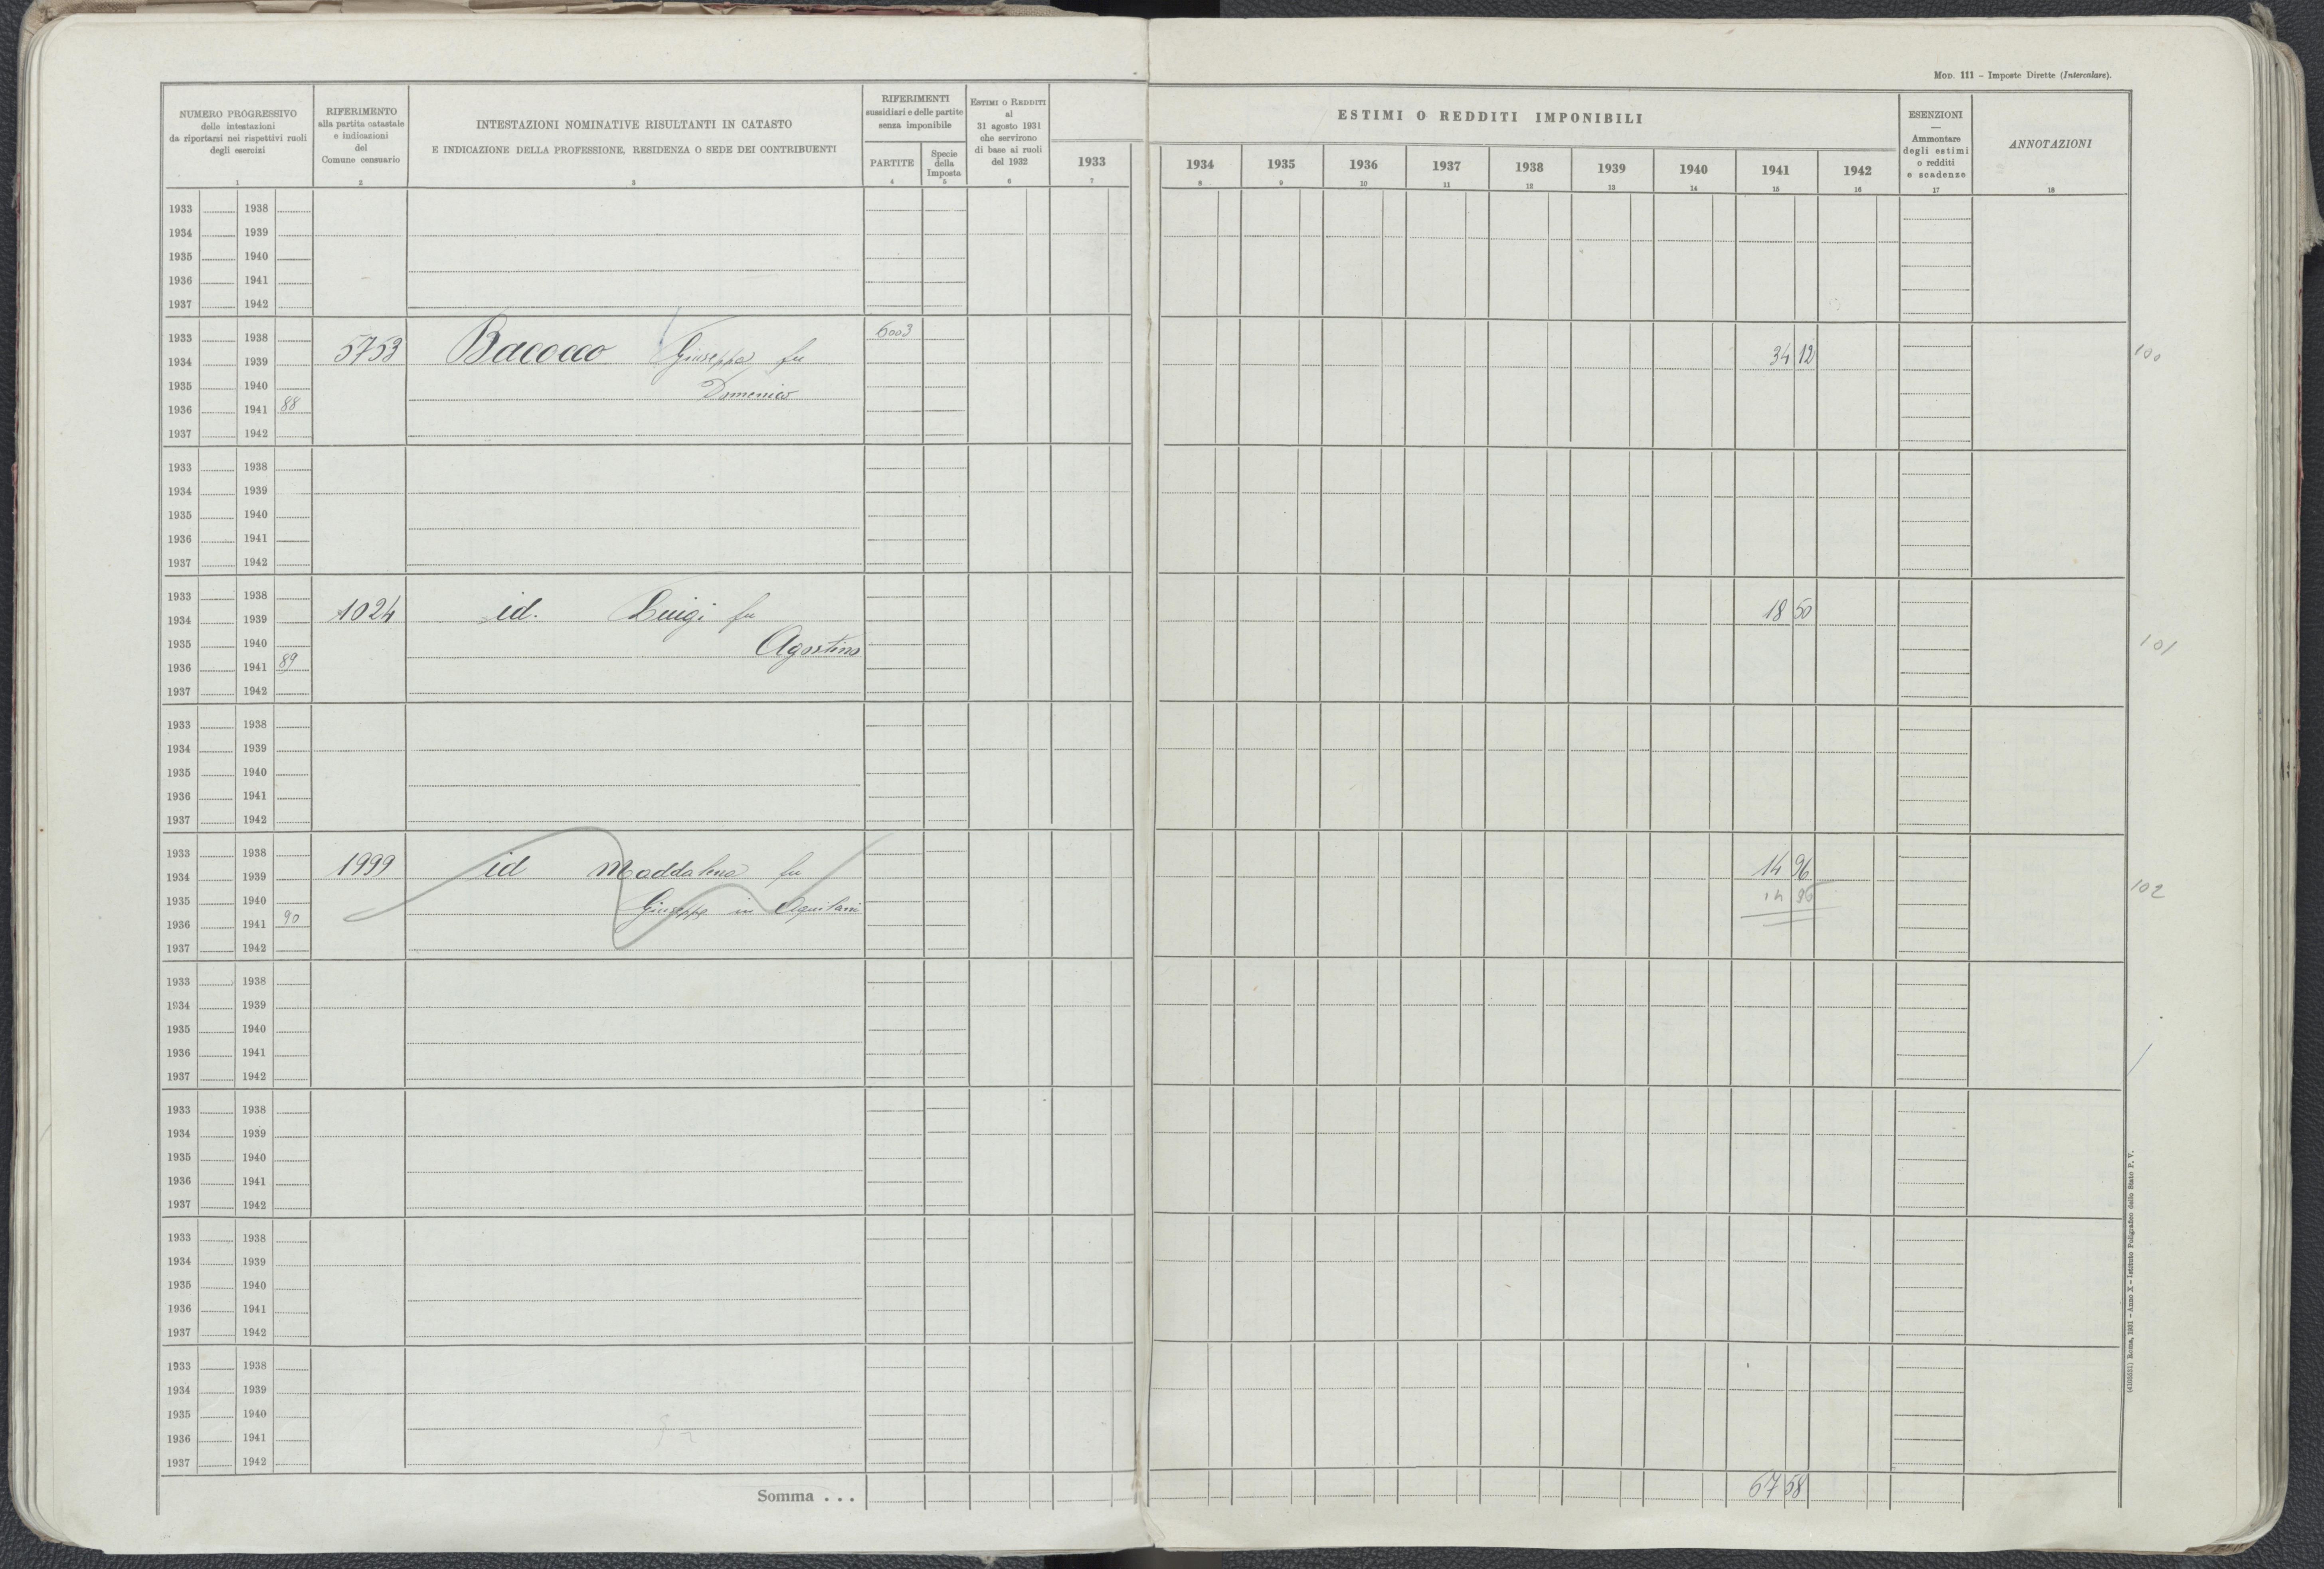 MOD. 111 – Imposte Dirette (Intercalare).
NUMERO PROGRESSIVO
delle intestazioni
da riportarsi nei rispettivi ruoli
degli esercizi
1
RIFERIMENTO
alla partita catastale
e indicazioni
del
Comune censuario
2
INTESTAZIONI NOMINATIVE RISULTANTI IN CATASTO
E INDICAZIONE DELLA PROFESSIONE, RESIDENZA O SEDE DEI CONTRIBUENTI
3
RIFERIMENTI
sussidiari e delle partite
senza imponibile
PARTITE
4
Specie
della
Imposta
5
ESTIMI O REDDITI
al
31 agosto 1931
che servirono
di base ai ruoli
del 1932
6
ESTIMI O REDDITI IMPONIBILI
1933 1934 1935 1936 1937 1938 1939 1940 1941 1942
7 8 9 10 11 12 13 14 15 16
ESENZIONI
—
Ammontare
degli estimi
o redditi
e scadenze
17
ANNOTAZIONI
18
1933 1938
1934 1939
1935 1940
1936 1941
1937 1942
1933 1938 6003
1934 1939 5753 Bacocco Giuseppe fu 34 12 100
1935 1940 Domenico
1936 1941 88
1937 1942
1933 1938
1934 1939
1935 1940
1936 1941
1937 1942
1933 1938
1934 1939 1024 id. Luigi fu 18 50
1935 1940 Agostino 101
1936 1941 89
1937 1942
1933 1938
1934 1939
1935 1940
1936 1941
1937 1942
1933 1938
1934 1939 1999 id Maddalena fu 14 96 102
1935 1940 Giuseppe in Aquilani 14 96
1936 1941 90
1937 1942
1933 1938
1934 1939
1935 1940
1936 1941
1937 1942
1933 1938
1934 1939
1935 1940
1936 1941
1937 1942
1933 1938
1934 1939
1935 1940
1936 1941
1937 1942
1933 1938
1934 1939
1935 1940
1936 1941
1937 1942
Somma . . . 67 58
Roma, 1931 – Anno X – Istituto Poligrafico dello Stato P. V.